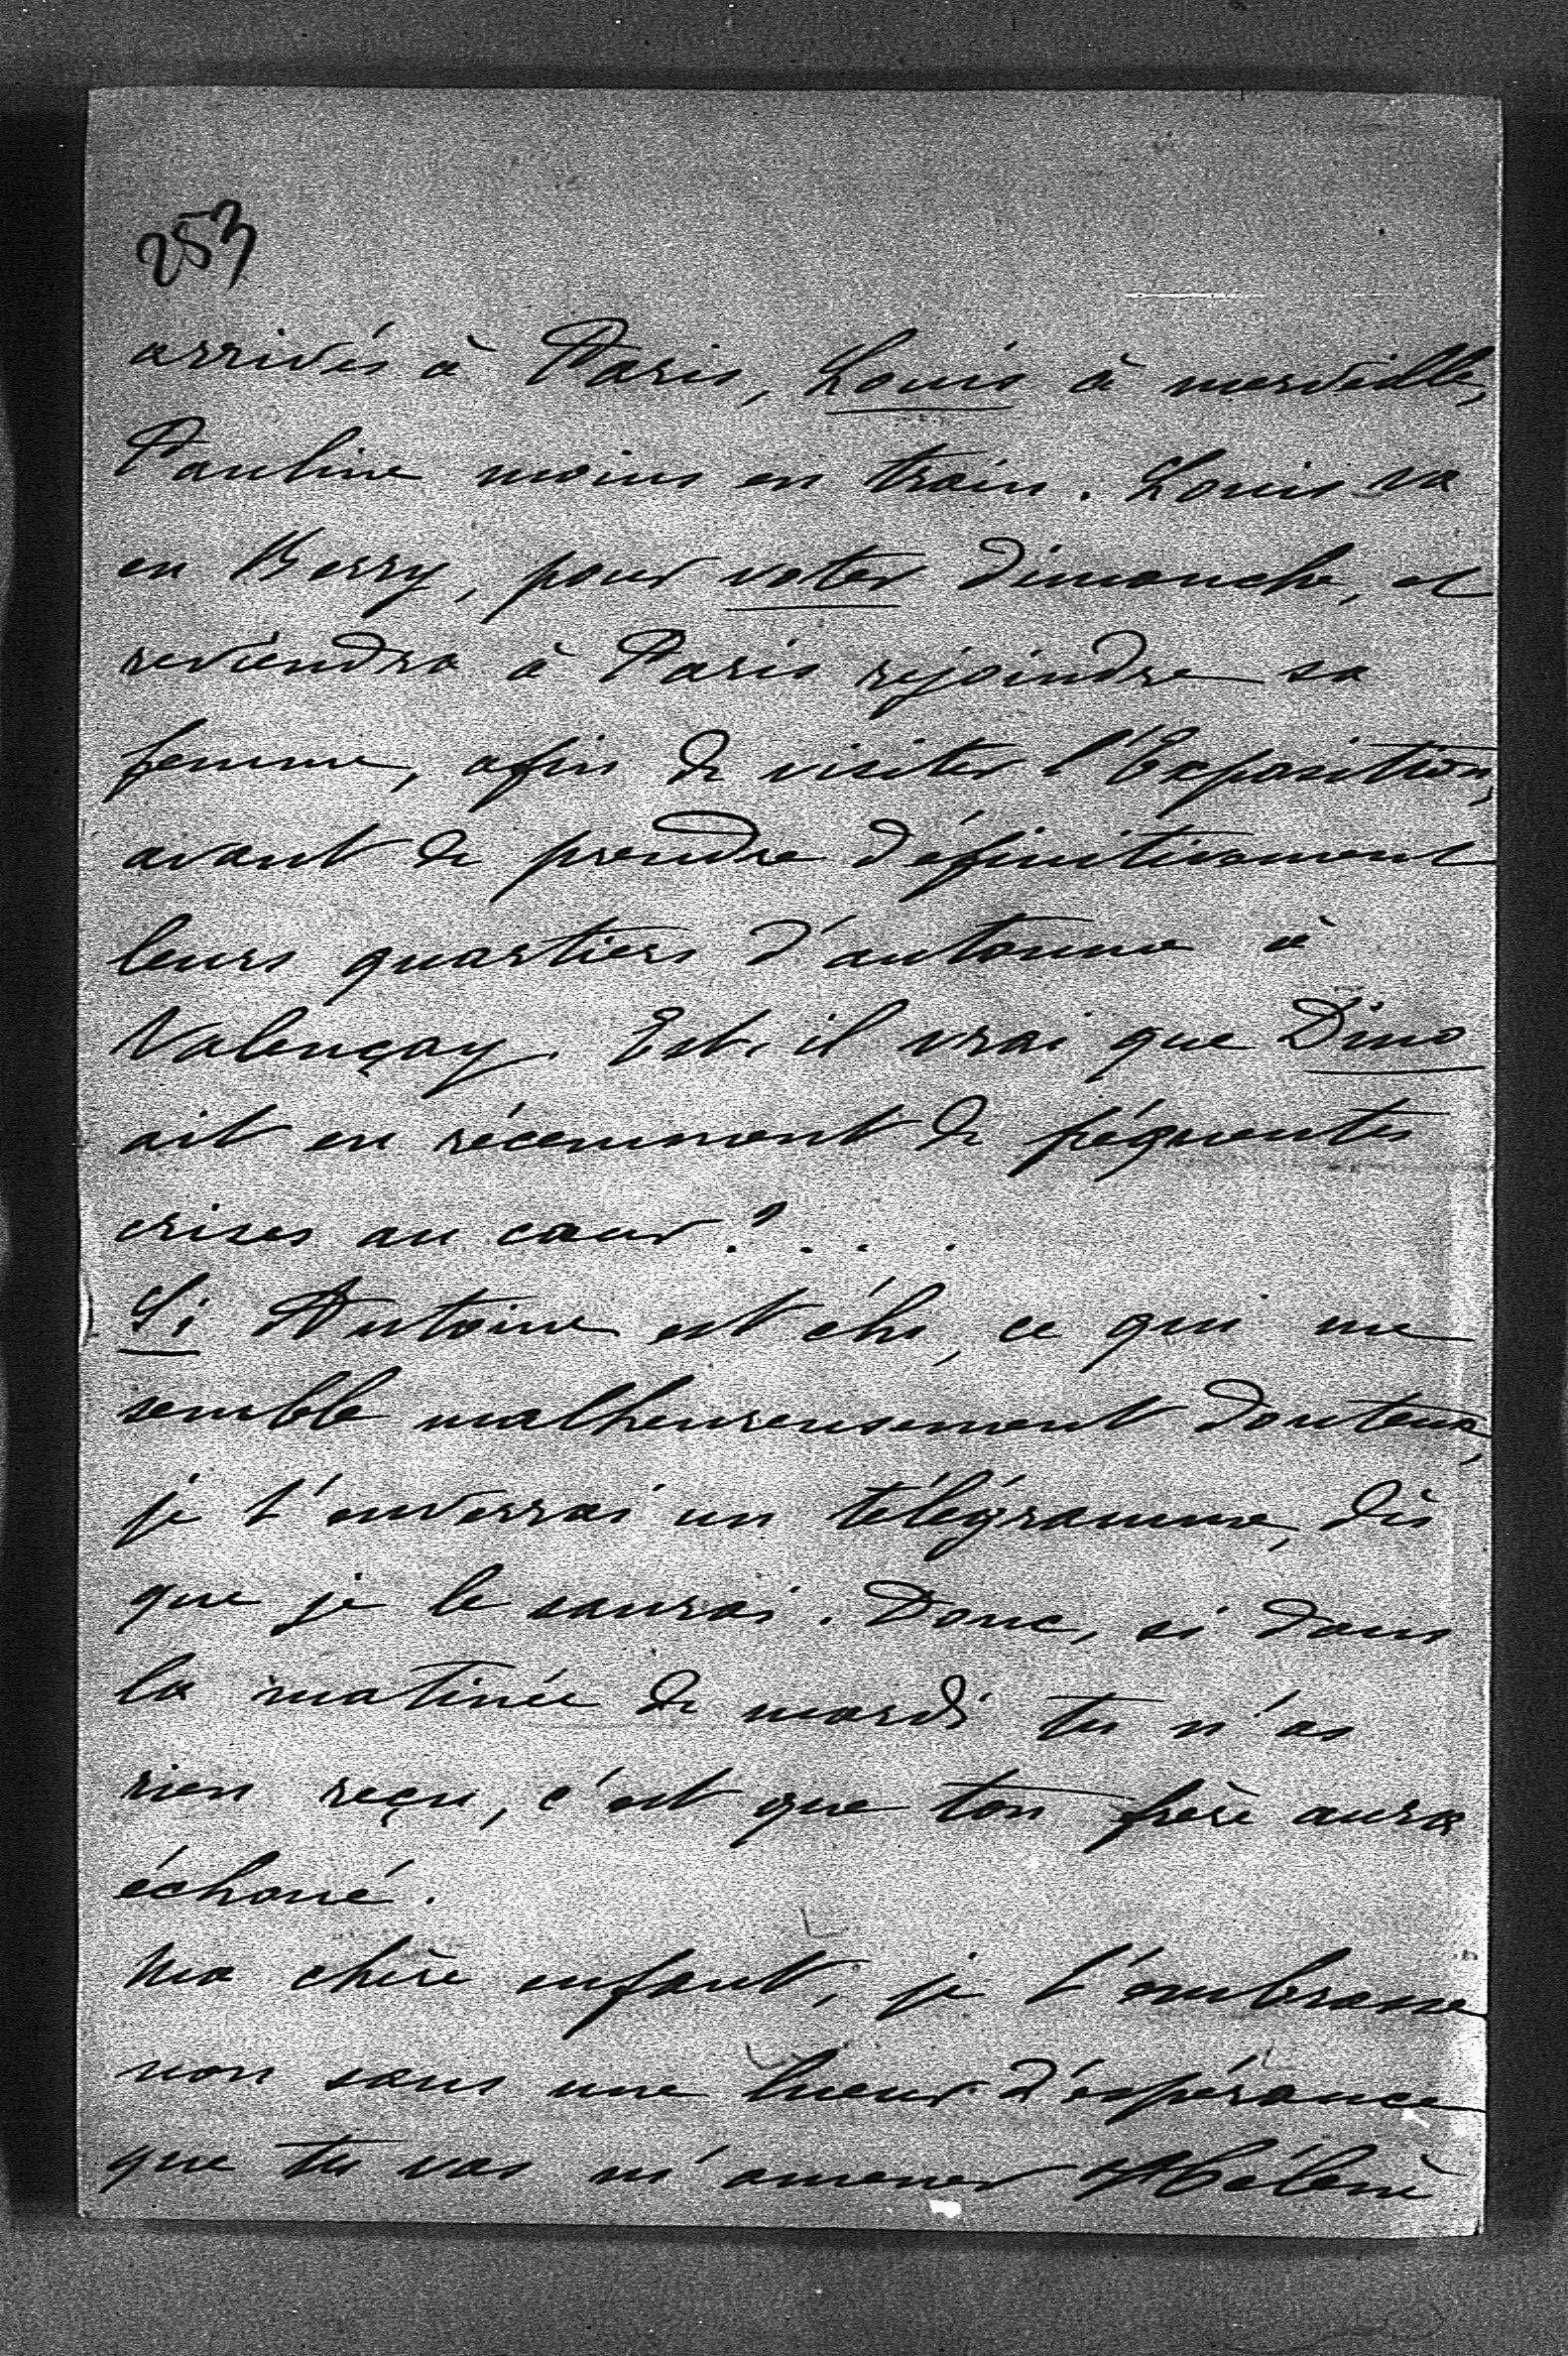 253
arrivés à Paris, Louis à merveille,
Pauline moins en train. Louis va
en Berry, pour voter dimanche, et
reviendra à Paris rejoindre sa
femme, afin de visiter l'Exposition,
avant de prendre définitivement
leurs quartiers d'automne à
Valençay. Est-il vrai que Dino
ait eu récemment de fréquentes
crises au cœur? . . .
Si Antoine est élu, ce qui me
semble malheureusement douteux,
je t'enverrai un télégramme, dès
que je le saurai. Donc, si dans
la matinée de mardi tu n'as
rien reçu, c'est que ton frère aura
échoué.
Ma chère enfant, je t'embrasse
non sans une lueur d'espérance
que tu vas m'amener Hélène